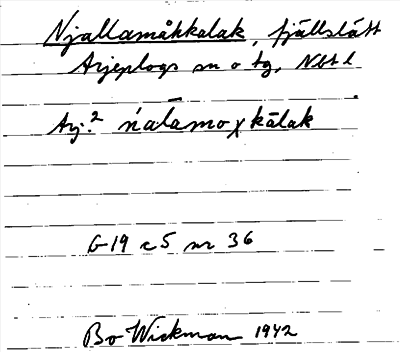 Njallamåhkalak, fjällslätt
Arjeplogs sn o tg, Nbt l
Arj.² ńalāmoχkālak
G 19 c 5 nr 36
Bo Wickman 1942